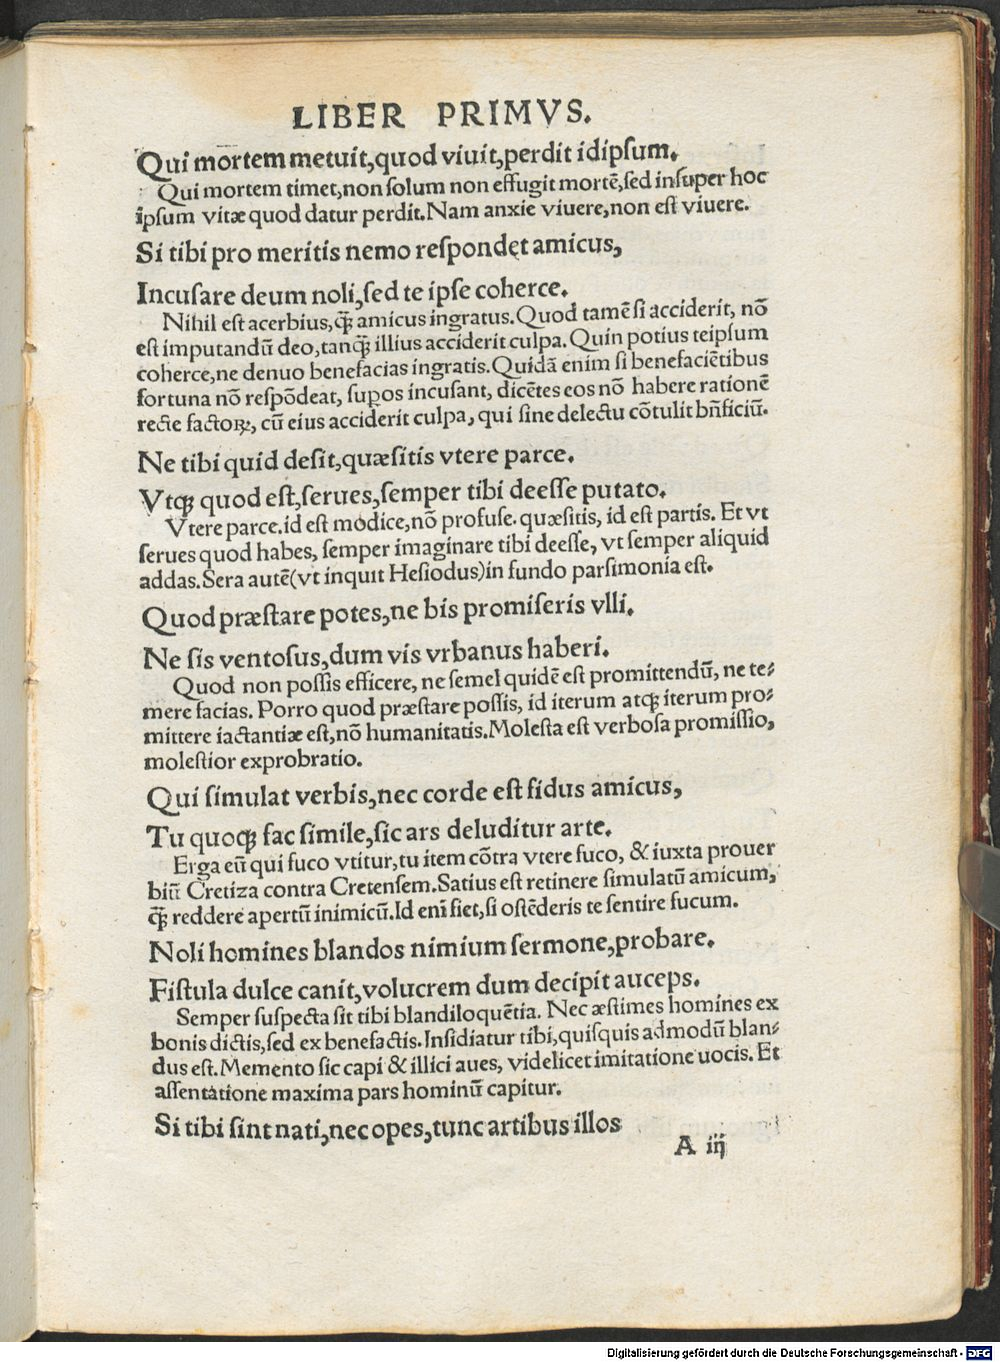 LIBER PRIMVS.
Qui mortem metuit,quod viuit,perdit idipſum.
Qui mortem timet,non ſolum non effugit mortē,ſed inſuper hoc
ipſum vitæ quod datur perdit.Nam anxie viuere,non eſt viuere.
Si tibi pro meritis nemo reſpondet amicus,
Incuſare deum noli,ſed te ipſe coherce.
Nihil eſt acerbius,q̃ꝫ amicus ingratus.Quod tamē ſi acciderit, nō
eſt imputandū deo,tanq̃ꝫ illius acciderit culpa.Quin potius teipſum
coherce,ne denuo benefacias ingratis.Quidā enim ſi benefaciētibus
fortuna nō reſpōdeat, ſupos incuſant, dicētes eos nō habere rationē
recte factoꝝ, cū eius acciderit culpa, qui ſine delectu cōtulit bn̄ficiū.
Ne tibi quid deſit,quæſitis vtere parce.
Vtqꝫ quod eſt,ſerues,ſemper tibi deeſſe putato.
Vtere parce.id eſt modice,nō profuſe.quæſitis, id eſt partis. Et vt
ſerues quod habes, ſemper imaginare tibi deeſſe, vt ſemper aliquid
addas.Sera autē(vt inquit Heſiodus)in fundo parſimonia eſt.
Quod præſtare potes,ne bis promiſeris vlli.
Ne ſis ventoſus,dum vis vrbanus haberi.
Quod non poſſis efficere, ne ſemel quidē eſt promittendū, ne te⸗
mere facias. Porro quod præſtare poſſis, id iterum atqꝫ iterum pro⸗
mittere iactantiæ eſt,nō humanitatis.Moleſta eſt verboſa promiſſio,
moleſtior exprobratio.
Qui ſimulat verbis,nec corde eſt fidus amicus,
Tu quoqꝫ fac ſimile,ſic ars deluditur arte.
Erga eū qui fuco vtitur,tu item cōtra vtere fuco, & iuxta prouer
biū Cretiza contra Cretenſem.Satius eſt retinere ſimulatū amicum,
q̃ꝫ reddere apertū inimicū.Id eni fiet,ſi oſtēderis te ſentire fucum.
Noli homines blandos nimium ſermone,probare.
Fiſtula dulce canit,volucrem dum decipit auceps.
Semper ſuſpecta ſit tibi blandiloquētia. Nec æſtimes homines ex
bonis dictis,ſed ex benefactis.Inſidiatur tibi,quiſquis admodū blan⸗
dus eſt.Memento ſic capi & illici aues, videlicet imitatione uocis. Et
aſſentatione maxima pars hominū capitur.
Si tibi ſint nati,nec opes,tunc artibus illos
A iij
Digitalisierung gefördert durch die Deutsche Forschungsgemeinschaft - DFG